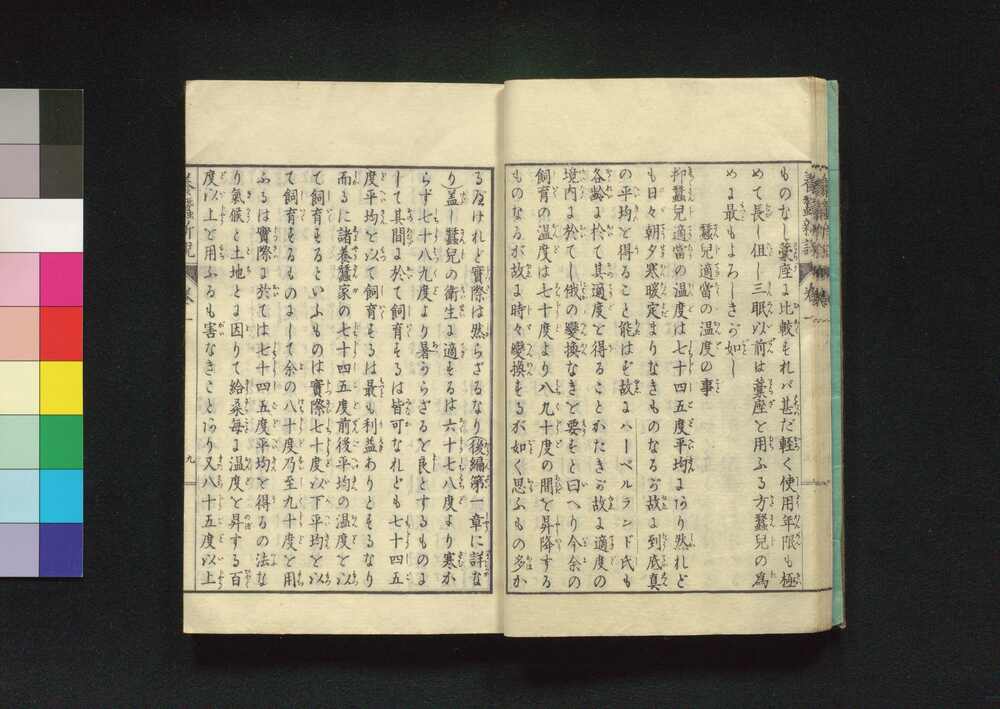 ものなし藁座に比較すれバ甚だ軽く使用年限も極
めて長し但し三眠以前は藁座を用ふる方蠶兒の為
めに最もよろしきが如し
蠶兒適當の温度の事
抑蠶兒適當の温度は七十四五度平均にあり然れど
も日々朝夕寒暖定まりなきものなるが故に到底真
の平均を得ること能はず故にハーベルランド氏も
各齢に於て其適度を得ることかたきが故に適度の
境内に於てし俄の變換なきを要すと曰へり今余の
飼育の温度は七十度より八九十度の間を昇降する
ものなるが故に時々變換するが如く思ふもの多か
るべけれど實際は然らざるなり(後編第一章に詳な
り)盖し蠶兒の衛生に適するは六十七八度より寒か
らず七十八九度より暑からざるを良とするものに
して其間に於て飼育するは皆可なれども七十四五
度平均を以て飼育するは最も利益ありとするなり
而るに諸養蠶家の七十四五度前後平均の温度を以
て飼育するといふものは實際七十度以下平均を以
て飼育するものにして余の八十度乃至九十度を用
ふるは實際に於ては七十四五度平均を得るの法な
り氣候と土地とに因りて給桑毎に温度を昇する百
度以上を用ふるも害なきことあり又八十五度以上
九